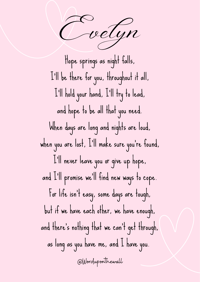 Evelyn
Hope springs as night falls,
I'll be there for you, throughout it all,
I'll hold your hand, I'll try to lead,
and hope to be all that you need.
When days are long and nights are loud,
when you are lost, I'll make sure you're found,
I'll never leave you or give up hope,
and I'll promise we'll find new ways to cope.
For life isn't easy, some days are tough,
but if we have each other, we have enough,
and there's nothing that we can't get through,
as long as you have me, and I have you.
@Wordsfromthewall